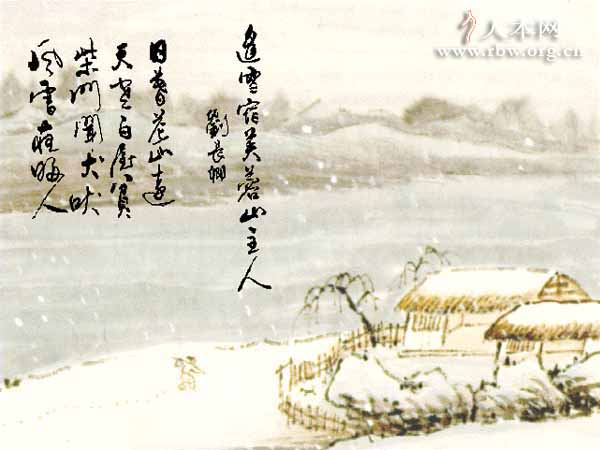 人本网
www.rbw.org.cn
逢雪宿芙蓉山主人
劉長卿
日暮蒼山遠
天寒白屋貧
柴門聞犬吠
風雪夜歸人